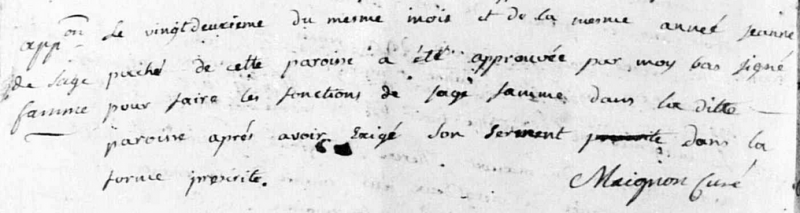 appon Le vingtdeuxieme du mesme mois et de la mesme année jeanne
de sage paché de cette paroisse a été approuvée par moy bas signé
famme pour faire les fonctions de sage famme dans la ditte
paroisse aprés avoir exigé son serment dans la
forme prescrite. Maignon Curé